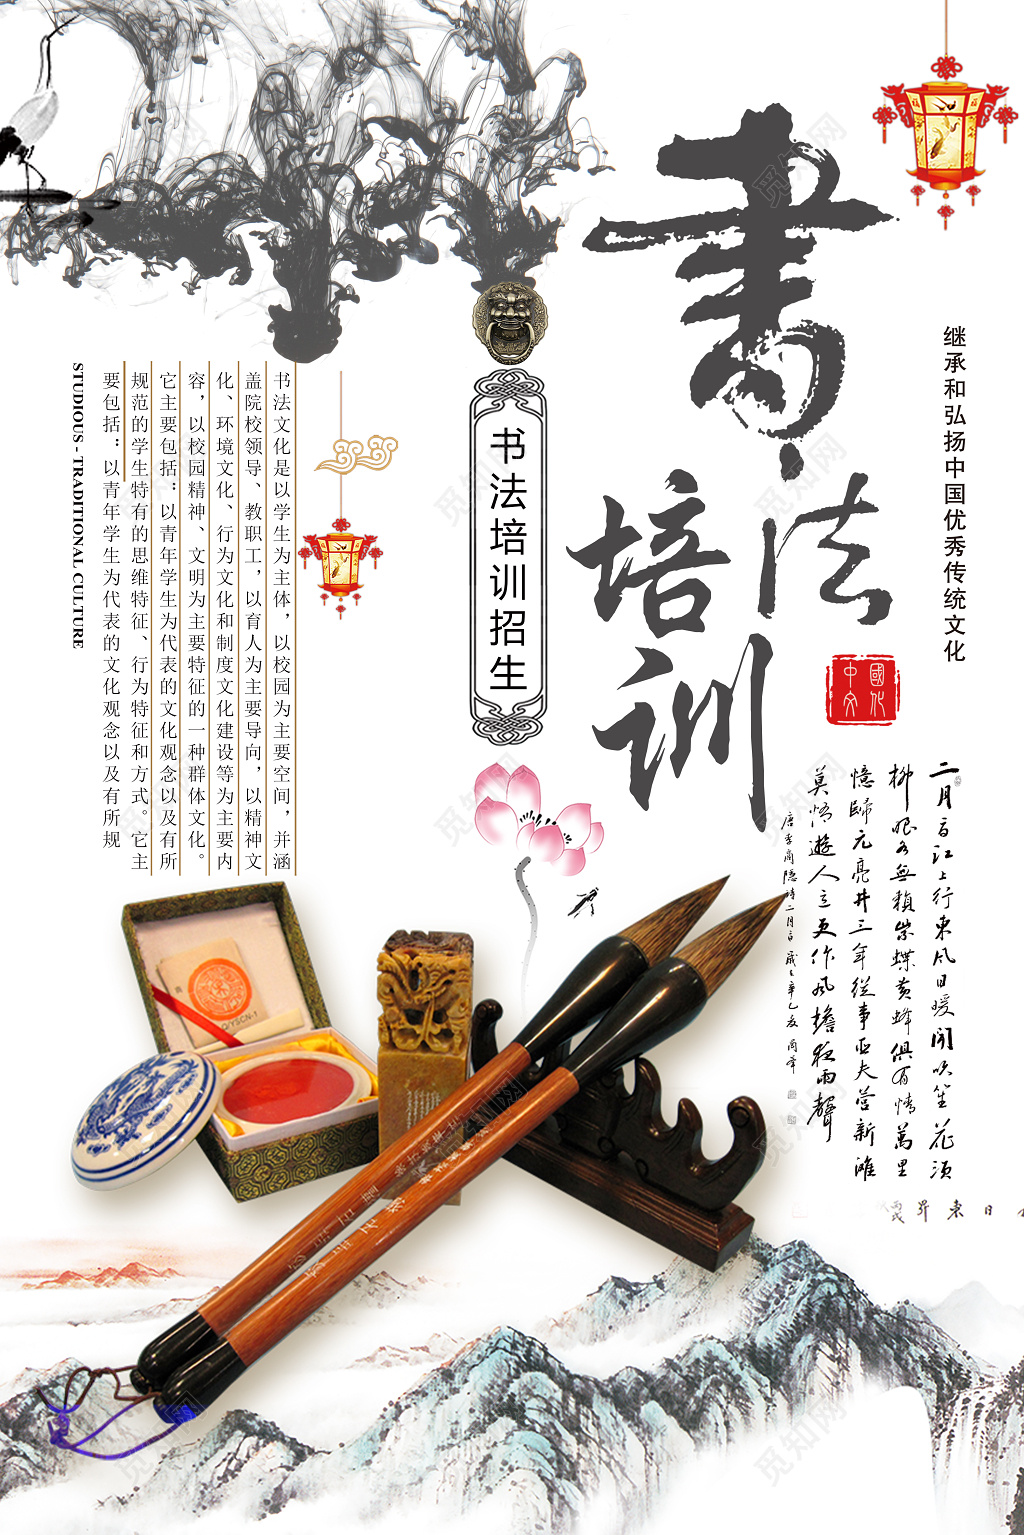 書法
培训
继承和弘扬中国优秀传统文化
國化
中文
书法培训招生
二月二日江上行東風日暖聞吹笙花須
柳眼各無賴紫蝶黄蜂俱有情萬里
憶歸元亮井三年從事亞夫營新灘
莫悟遊人意更作風檐夜雨聲
唐李商隱詩二月二日
书法文化是以学生为主体，以校园为主要空间，并涵
盖院校领导、教职工，以育人为主要导向，以精神文
化、环境文化、行为文化和制度文化建设等为主要内
容，以校园精神、文明为主要特征的一种群体文化。
它主要包括：以青年学生为代表的文化观念以及有所
规范的学生特有的思维特征、行为特征和方式。它主
要包括：以青年学生为代表的文化观念以及有所规
STUDIOUS - TRADITIONAL CULTURE
Q/YSCN-1
觅知网